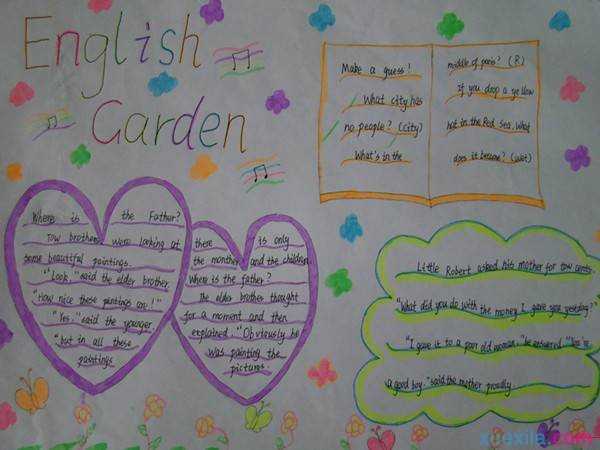 English
Garden
Where is the Father?
Tow brothers were looking at
some beautiful paintings.
"Look," said the elder brother.
"How nice these paintings are!"
"Yes," said the younger
"but in all these
paintings
there is only
the monther and the children
Where is the father?
The elder brother thought
for a moment and then
explained. "Obviously he
was painting the
pictures.
Make a guess!
What city has
no people? (city)
What's in the
middle of paris? (R)
If you drop a yellow
hat in the Red Sea. What
does it become? (wet)
Little Robert asked his mother for tow cents.
"What did you do with the money I gave you
"I gave it to a poor old woman," he answered.
a good boy," said the mother proudly.
xuexila.com